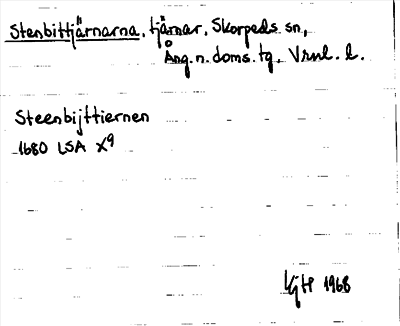 Stenbittjärnarna, tjärnar, Skorpeds sn,
Ång. n. doms. tg. Vrnl. l.
Steenbijttiernen
1680 LSA X9
KjH 1968